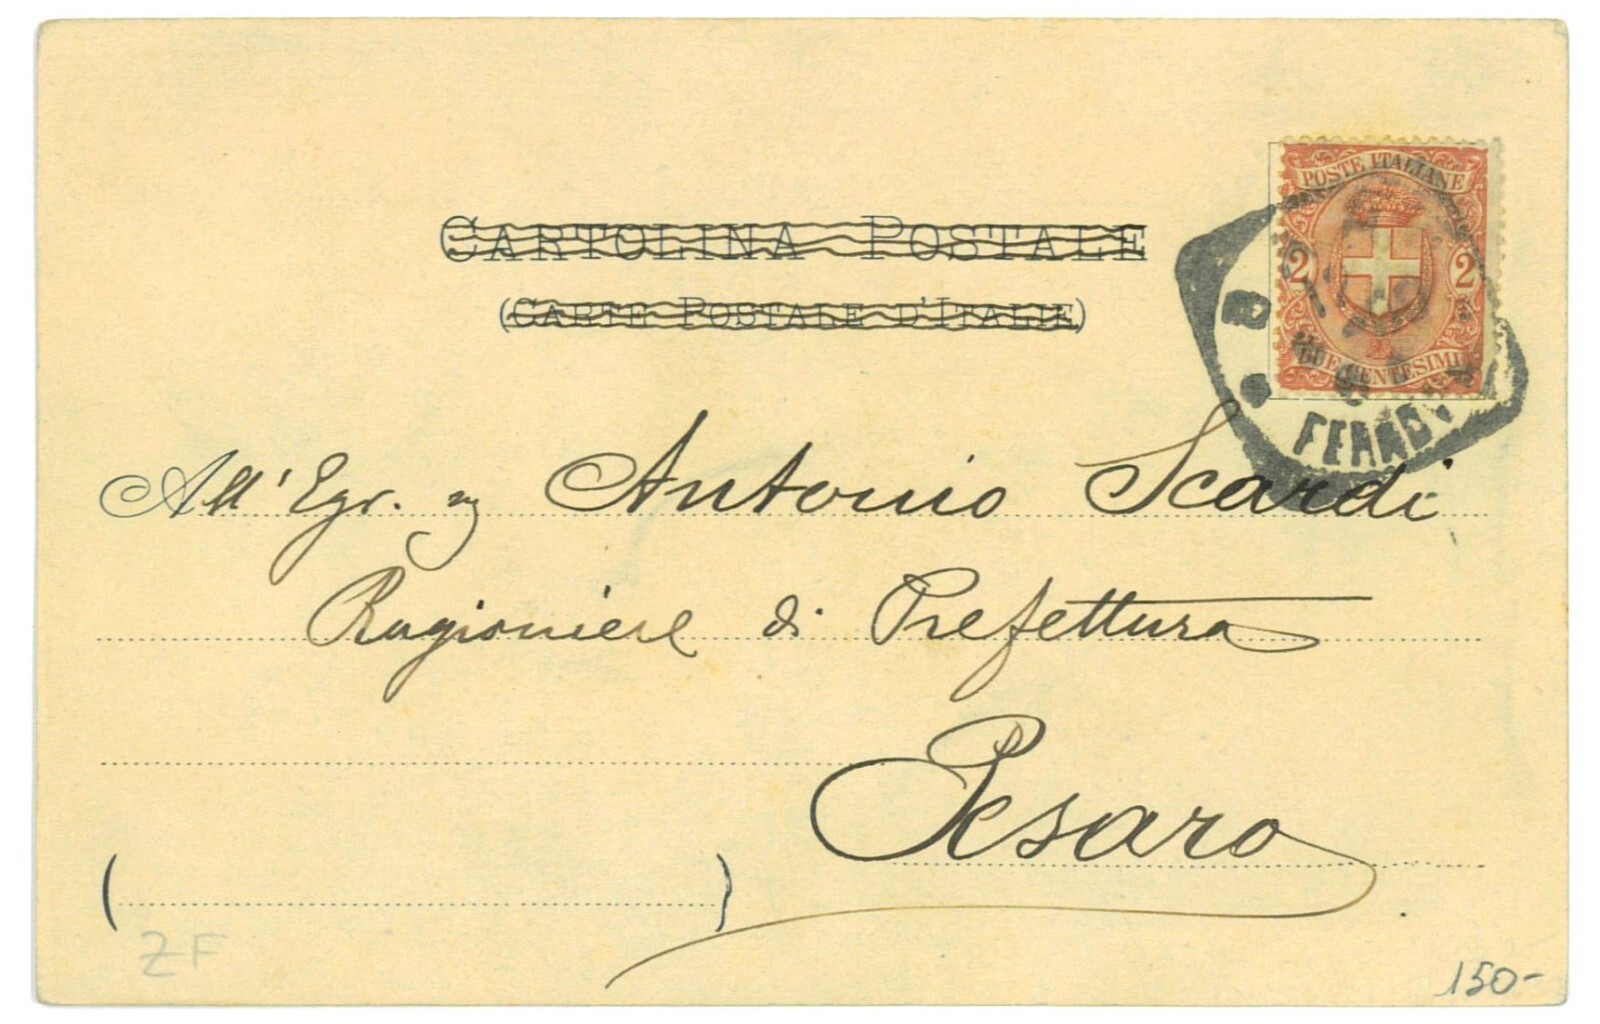 CARTOLINA POSTALE
(CARTE POSTALE D'ITALIE)
POSTE ITALIANE
2 2
DUE CENTESIMI
All' Egr. Antonio Scardi
Ragioniere di Prefettura
Pesaro
( )
ZF
150-